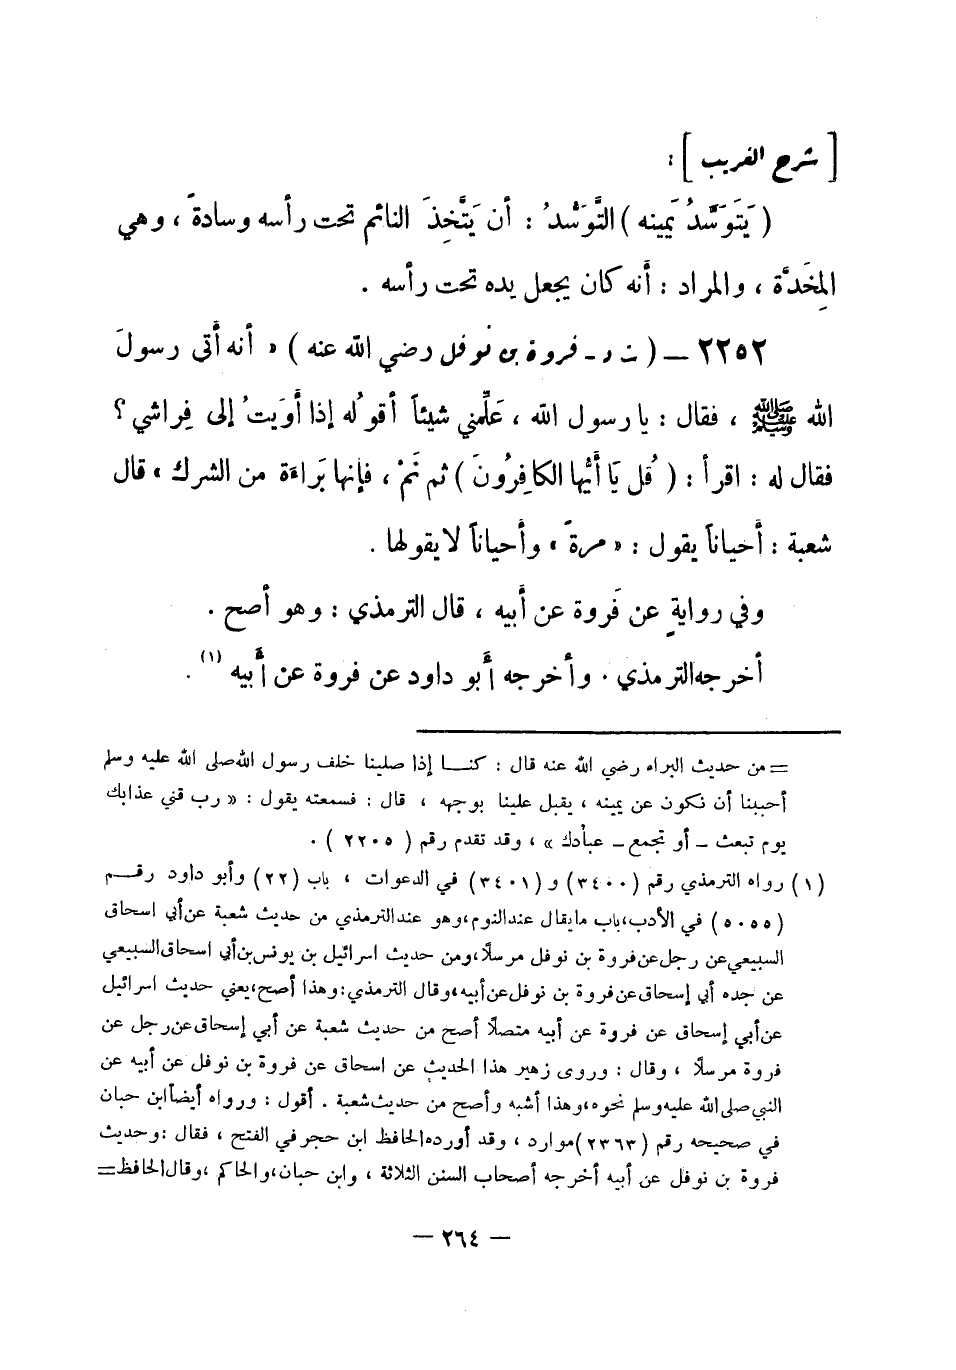 [ شرح الغريب ] :
( يَتَوَسَّدُ يَمينه ) التَّوَسُّدُ : أن يَتَّخِذَ النائم تحت رأسه وسادةً ، وهي
المِخَدَّة ، والمراد : أنه كان يجعل يده تحت رأسه .
٢٢٥٢ – ( ت د - فروة بن نوفل رضي الله عنه ) « أنه أتى رسولَ
الله ﷺ ، فقال : يا رسول الله ، عَلِّمني شيئاً أقولُه إذا أويتُ إلى فِراشي ؟
فقال له : اقرأ : ( قُل يَا أَيُّها الكافِرُونَ ) ثم نَمْ ، فإنها بَراءَة من الشرك » قال
شعبة : أحياناً يقول : « مرةً » وأحياناً لا يقولها .
وفي روايةٍ عن فَروة عن أبيه ، قال الترمذي : وهو أصح .
أخرجه الترمذي . وأخرجه أبو داود عن فروة عن أبيه (١) .
= من حديث البراء رضي الله عنه قال : كنـــا إذا صلينا خلف رسول الله صلى الله عليه وسلم
أحببنا أن نكون عن يمينه ، يقبل علينا بوجهه ، قال : فسمعته يقول : « رب قني عذابك
يوم تبعث – أو تجمع – عبادك » ، وقد تقدم رقم ( ٢٢٠٥ ) .
(١) رواه الترمذي رقم (٣٤٠٠) و (٣٤٠١) في الدعوات ، باب (٢٢) وأبو داود رقــم
(٥٠٥٥) في الأدب ، باب ما يقال عند النوم ، وهو عند الترمذي من حديث شعبة عن أبي اسحاق
السبيعي عن رجل عن فروة بن نوفل مرسلاً ، ومن حديث اسرائيل بن يونس بن أبي اسحاق السبيعي
عن جده أبي إسحاق عن فروة بن نوفل عن أبيه ، وقال الترمذي : وهذا أصح ، يعني حديث اسرائيل
عن أبي إسحاق عن فروة عن أبيه متصلاً أصح من حديث شعبة عن أبي إسحاق عن رجل عن
فروة مرسلاً ، وقال : وروى زهير هذا الحديث عن اسحاق عن فروة بن نوفل عن أبيه عن
النبي صلى الله عليه وسلم نحوه ، وهذا أشبه وأصح من حديث شعبة . أقول : ورواه أيضاً ابن حبان
في صحيحه رقم (٢٣٦٣) موارد ، وقد أورده الحافظ ابن حجر في الفتح ، فقال : وحديث
فروة بن نوفل عن أبيه أخرجه أصحاب السنن الثلاثة ، وابن حبان ، والحاكم ، وقال الحافظ =
– ٢٦٤ –